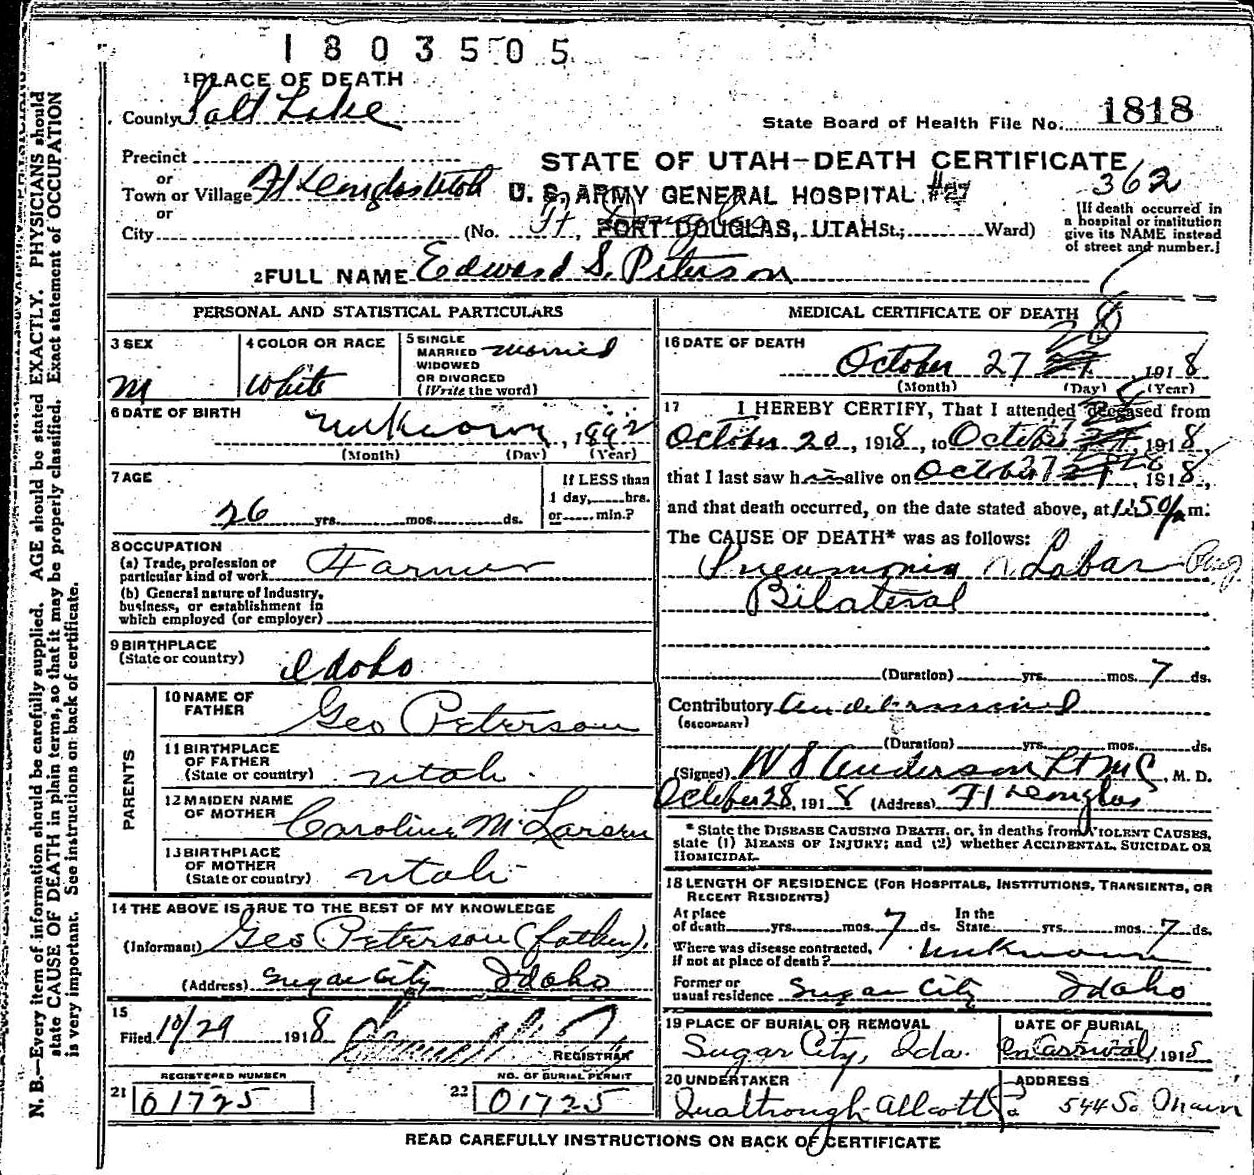 1803505
1 PLACE OF DEATH
County Salt Lake
State Board of Health File No. 1818
Precinct
or
Town or Village Ft Douglas Utah
or
City
STATE OF UTAH—DEATH CERTIFICATE
362
U. S. ARMY GENERAL HOSPITAL #27
(No. Ft. Douglas
FORT DOUGLAS, UTAH St.; Ward)
[If death occurred in
a hospital or institution
give its NAME instead
of street and number.]
2 FULL NAME Edward S. Peterson
PERSONAL AND STATISTICAL PARTICULARS
3 SEX
M
4 COLOR OR RACE
White
5 SINGLE
MARRIED
WIDOWED
OR DIVORCED
(Write the word)
married
6 DATE OF BIRTH
unknown, 1892
(Month) (Day) (Year)
7 AGE
26 yrs. mos. ds.
If LESS than
1 day, hrs.
or min.?
8 OCCUPATION
(a) Trade, profession or
particular kind of work Farmer
(b) General nature of Industry,
business, or establishment in
which employed (or employer)
9 BIRTHPLACE
(State or country) Idaho
PARENTS
10 NAME OF
FATHER
Geo Peterson
11 BIRTHPLACE
OF FATHER
(State or country) Utah
12 MAIDEN NAME
OF MOTHER
Caroline M. Larsen
13 BIRTHPLACE
OF MOTHER
(State or country) Utah
14 THE ABOVE IS TRUE TO THE BEST OF MY KNOWLEDGE
(Informant) Geo Peterson (father).
(Address) Sugar City Idaho
15
Filed 10/29 1918
REGISTRAR
REGISTERED NUMBER
21 01725
NO. OF BURIAL PERMIT
22 01725
MEDICAL CERTIFICATE OF DEATH
16 DATE OF DEATH
28
October 27, 1918
(Month) (Day) (Year)
17 I HEREBY CERTIFY, That I attended deceased from
October 20, 1918, to October 28, 1918,
that I last saw him alive on October 27 28, 1918,
and that death occurred, on the date stated above, at m.
The CAUSE OF DEATH* was as follows:
Pneumonia Lobar
Bilateral
(Duration) yrs. mos. 7 ds.
Contributory Undetermined
(SECONDARY)
(Duration) yrs. mos. ds.
(Signed) W S Anderson Lt MC, M. D.
October 28, 1918 (Address) Ft Douglas
* State the DISEASE CAUSING DEATH, or, in deaths from VIOLENT CAUSES,
state (1) MEANS OF INJURY; and (2) whether ACCIDENTAL, SUICIDAL OR
HOMICIDAL.
18 LENGTH OF RESIDENCE (FOR HOSPITALS, INSTITUTIONS, TRANSIENTS, OR
RECENT RESIDENTS)
At place
of death yrs. mos. 7 ds.
In the
State yrs. mos. 7 ds.
Where was disease contracted,
if not at place of death? Unknown
Former or
usual residence Sugar City Idaho
19 PLACE OF BURIAL OR REMOVAL
Sugar City, Ida.
DATE OF BURIAL
On arrival, 1918
20 UNDERTAKER
Qualtrough-Allcott Co
ADDRESS
544 So Main
READ CAREFULLY INSTRUCTIONS ON BACK OF CERTIFICATE
N. B.—Every item of information should be carefully supplied. AGE should be stated EXACTLY. PHYSICIANS should
state CAUSE OF DEATH in plain terms, so that it may be properly classified. Exact statement of OCCUPATION
is very important. See instructions on back of certificate.